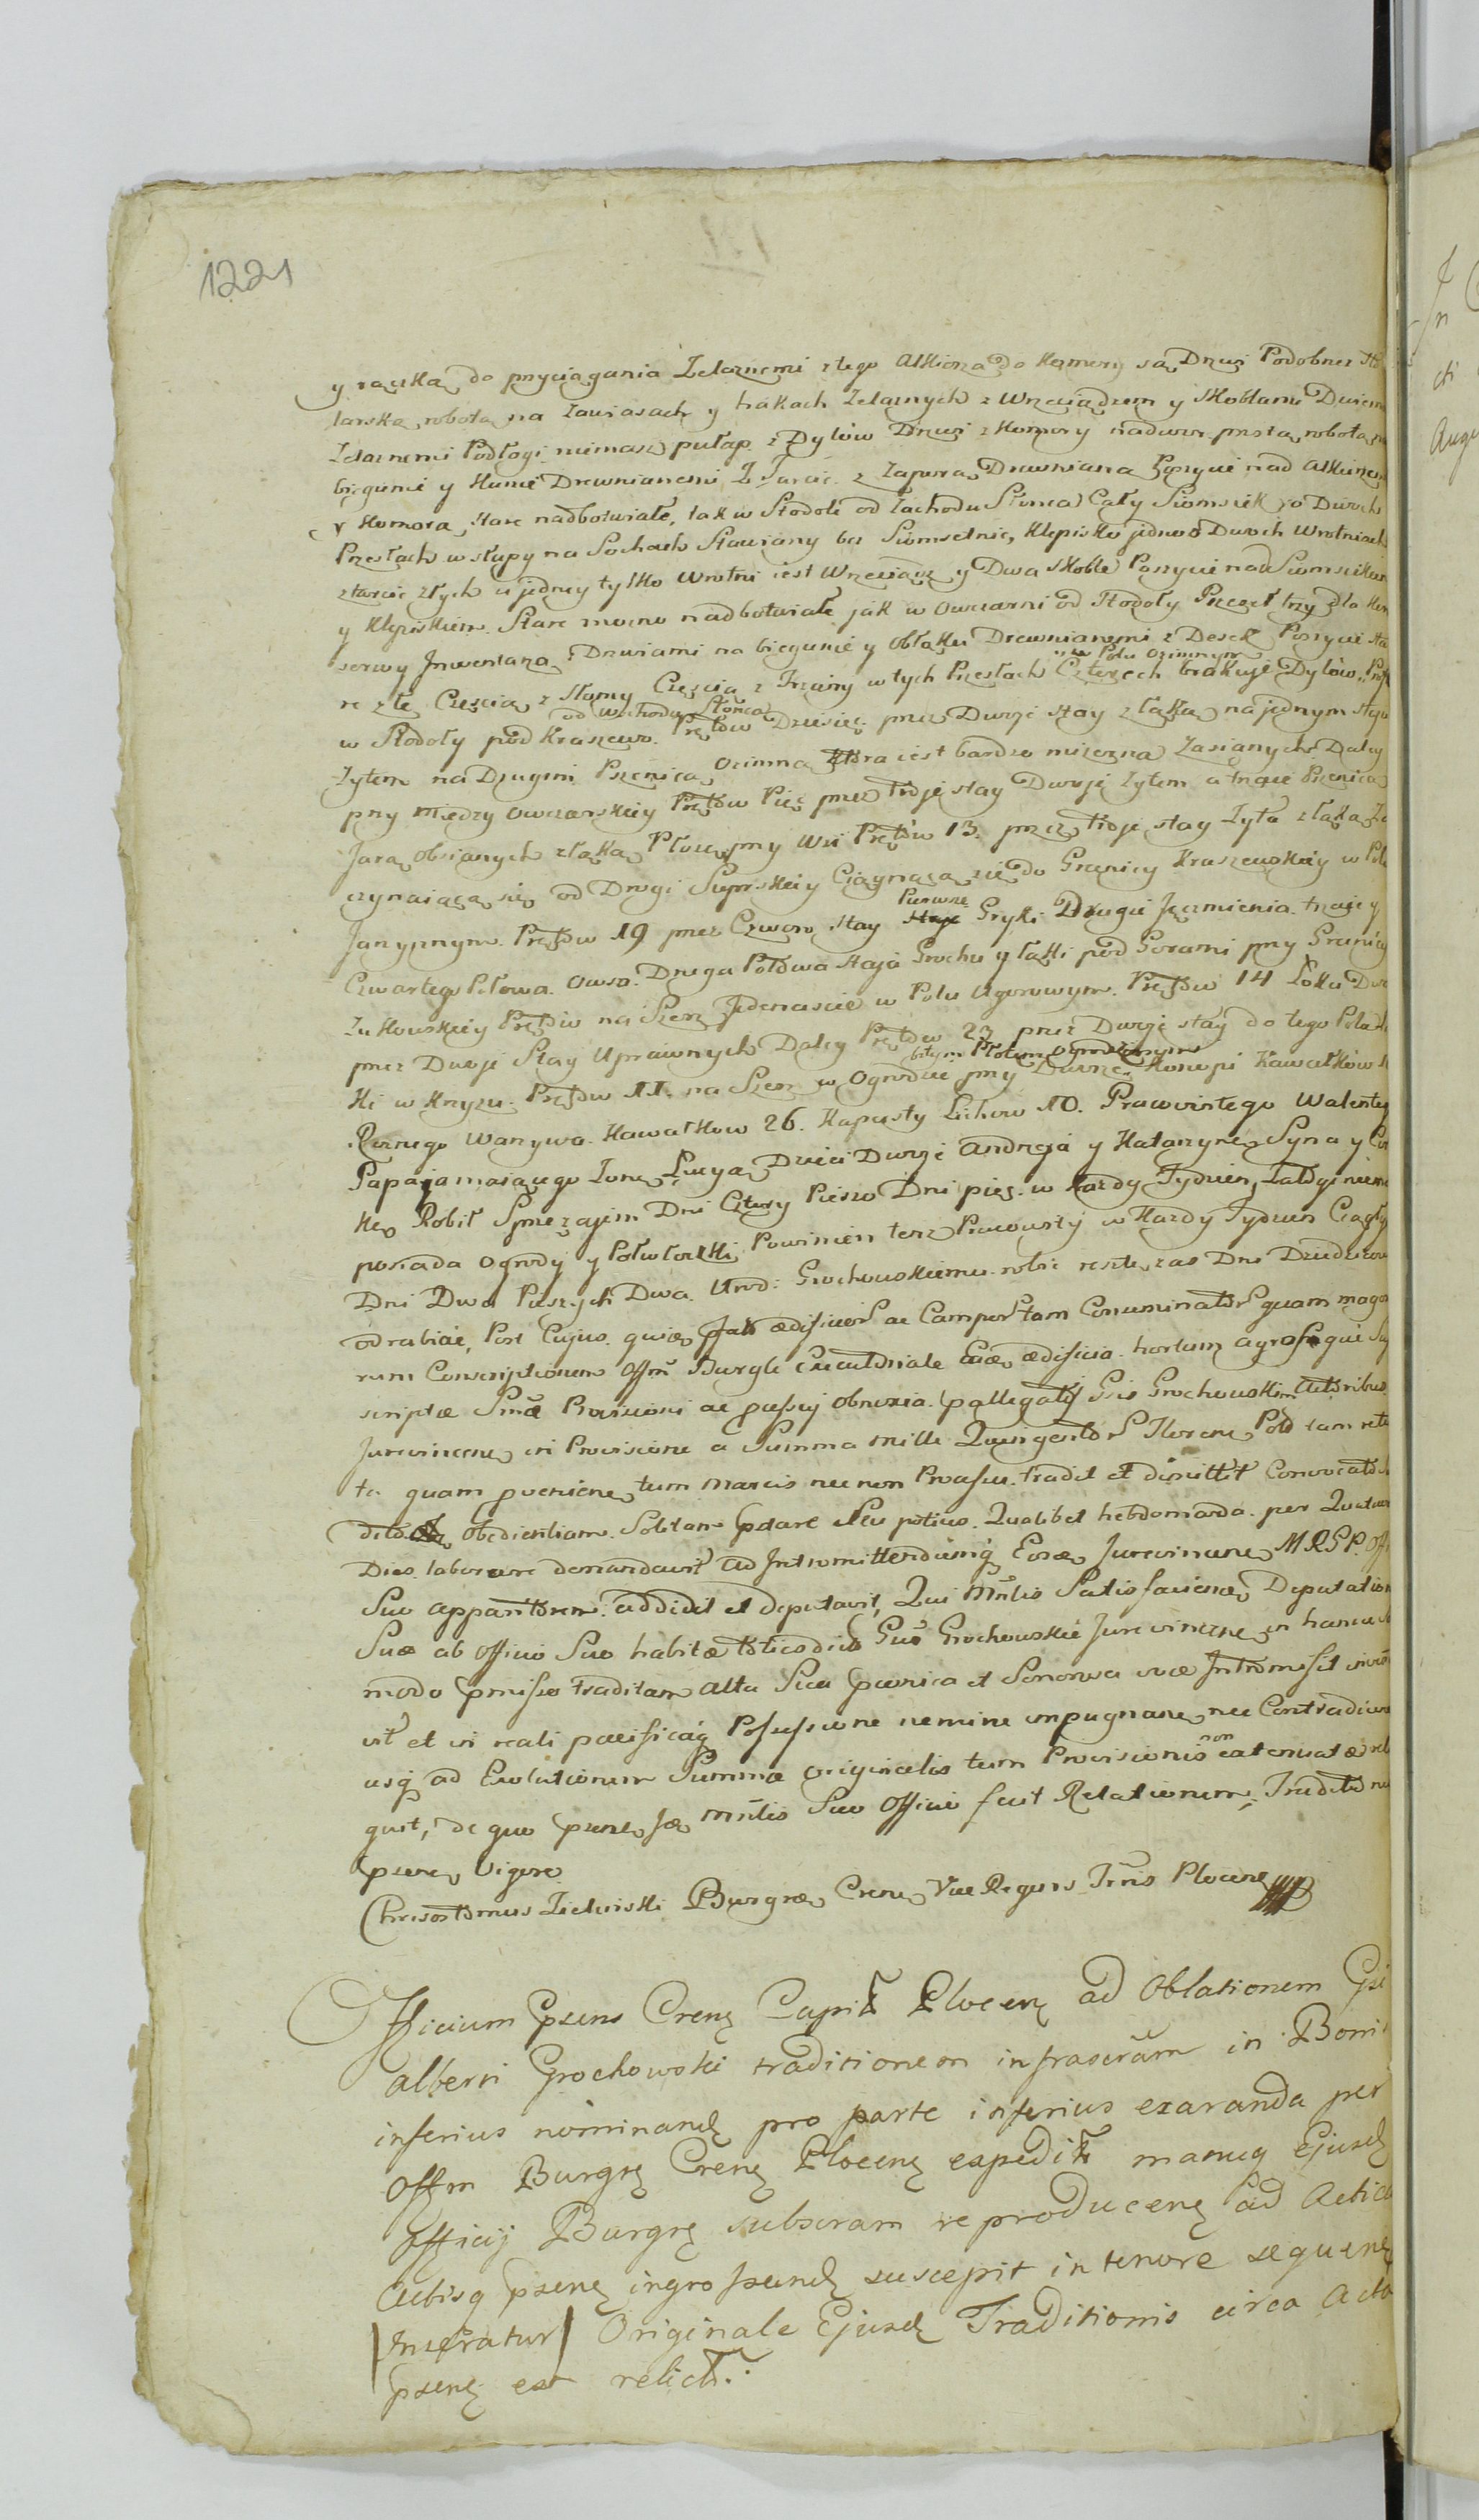 1221
y rączką do przyciągania Zelaznemi z tego Alkierza do Komory są Drzwi Podobnez Sto
larską robotą na Zawiasach y hakach Zelaznych z Wrzeciądzem y Skoblami Dwiema
Zelaznemi Podłogi niemasz pułap z Dylów Drzwi z Komory nadwor prostą robotą na
biegunie y Kunie Drewnianemi Z Tarcic z Zaporą Drewnianą Poszycie nad Alkierzem
y Komorą Stare nadbotwiałe, tak w Stodole od Zachodu Słonca Cały Siomsiek o Dwoch
Przesłach w słupy na Sochach Stawiany bez Siomsetnic, Klepisko jedno o Dwoch Wrotniach
z tarcic złych u jedney tylko Wrotni iest Wrzeciądz y Dwa Skoble Poszycie nad Siomsiekiem
y Klepiskiem Stare mocno nadbotwiałe jak w Owczarni od Stodoły Przeseł trzy dla Kon
serwy Inwentarza z Drzwiami na biegunie y Obłąku Drewnianemi z Desek Poszycie sta
re złe Częscią z Słomy Częscią z Trzciny w tych Przesłach Czterech brakuje Dylów, w Polu Oziminym Przy
w Stodoły pod Kraszewo od Wschodu Słońca Prętów Dziesięć przez Dwoje stay z łąką na jednym stayu
Zytem na Drugim Pszenicą Ozimną Ktora iest bardzo mizerna Zasianych Daley
przy Miedzy Owczarskiey Prętów Pięć przez troje stay Dwoje Zytem a trzecie Pszenicą
Jarą Obsianych z łąką Płosą przy Wsi Prętów 13. przez troje stay Zyta z łąką Za
czynaiącą się od Drogi Supiskiey Ciągnącą się do Granicy Kraszewskiey w Polu
Jarzynnym. Prętów 19 przez Czworo stay Pierwsze Gryki Drugie Jęczmienia trzecie y
Czwartego Połowa Owsa. Druga Połowa staja Grochu y łąki pod Gorami przy Granicy
Zukowskiey Prętów na Szerz Jedenascie w Polu Ugorowym. Prętów 14 Łoku Dwa
przez Dwoje Stay Uprawnych Daley Prętów 23 przez Dwoje stay do tego Pola łą
ki w Krzyżu Prętów 11. na Szerz w Ogrodzie bitym Płotem ogrodzonym przy Dworze Konopi Kawałków
Roznego Warzywa Kawałkow 26. Kapusty Lichow 10. Pracowitego Walentego
Papaja maiącego Zonę Łucyą Dzieci Dwoje Andrzeja y Katarzynę Syna y Cor
kę Robił Sprzęzajem Dni Cztery Pieszo Dni pięć w Kazdy Tydzien, Załogi niema
posiada Ogrody y Połwłoczki Powinien tenz Pracowity w Kazdy Tydzien Ciągłych
Dni Dwa Pieszych Dwa Urod: Grochowskiemu robic resztę zas Dni Dziedzicowi
odrabiać, Post Cujus quidem ædificior ac Campor tam Conuminator quam mago
rum Conscriptionem Offm Burgle Executoriale Eadem ædificia hortum agrosque Su
scriptæ Smæ Provisioni ac obnoxia allegatis Gsis Grochowskim Actoribus
Jurevincen in Provisione a Summa mille Quingentor Floren Pol tam reten
ta quam provenien tum Marcis nec non Processu tradit et dimittit Convocatis
Obedientiam Solitam Pstare Seu potius Qualibet hebdomada per Quatuor
Dies laborare demandavit ad Intromittendumq Eosdem Jurevincen MRGP. Offi
Suo apparitorem addidit et deputavit, Qui Mnlis Satisfaciens Deputationi
Suæ ab Officio Suo habitæ toties dictos Gsos Grochowskie Jurevincen in hancce
modo pmisso traditam alta Sua et Sonorosa voce Intromisit
vit et in reali pacificaq Possessione nemine impugnan nec Contradicen
usq ad Evolutionem Summæ originalis tum Provisionis non extenuatæ reli
quit, de quo præns Idem Mnlis Suo Officio fecit Relationem, Traditionis
præn Vigore
Chrisostomus Zieliński Burgrs Crens Vice Regens Trris Plocens

Officium præns Crens Capitle Plocens ad Oblationem Gsi
alberti Grochowski traditionem infrascram in Bonis
inferius nominand pro parte inferius exaranda per
Offm Burgr Crens Plocens expedit manuq Ejusd
Officij Burgr subscram reproducens ad Acticand
Actisq præns ingrossand suscepit in tenore sequens
Inseratur Originale Ejusd Traditionis circa Acta
præns est relict.